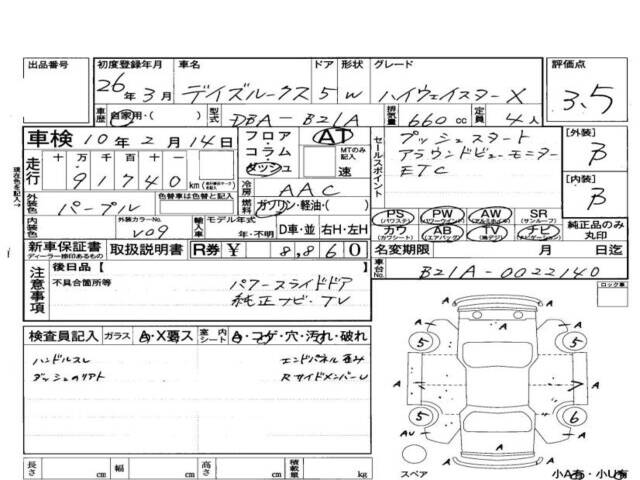 出品番号 初度登録年月 車名 ドア 形状 グレード 評価点
26年3月 デイズルークス 5 W ハイウェイスターX 3.5
車歴 自家用・( ) 型式 DBA-B21A 排気量 660cc 定員 4人
車検 10年2月14日 フロア・コラム・ダッシュ AT MTのみ記入 速
セールスポイント プッシュスタート
アラウンドビューモニター
ETC
[外装] B
[内装] B
現在色を記入→
走行 十 万 千 百 十 一
91740 km
冷房 AAC
外装色 パープル 色替車は色替と記入 燃料 ガソリン・軽油・( )
内装色 外装カラーNo. V09 輸入車 モデル年式 年・不明 D車・並 右H・左H
PS (パワステ) PW (パワーウインド) AW (アルミホイル) SR (サンルーフ)
カワ (カワシート) AB (エアバッグ) TV (純正) ナビ (ナビゲーション)
純正品のみ丸印
新車保証書 ディーラー捺印あるもの 取扱説明書 R券 ¥ 8,860
名変期限 月 日迄
車台No. B21A-0022140
注意事項 後日品 [ ]
不具合箇所等 パワースライドドア
純正ナビ・TV
ロック車
検査員記入 ガラス A・X要ス 室内シート A・コゲ・穴・汚れ・破れ
ハンドルスレ エンドパネル歪み
RサイドメンバーU
A A
5 A A 5
A A A
5 6
AU A A
A
スペア 小A有・小U有
長さ cm 幅 cm 高さ cm 積載量 kg